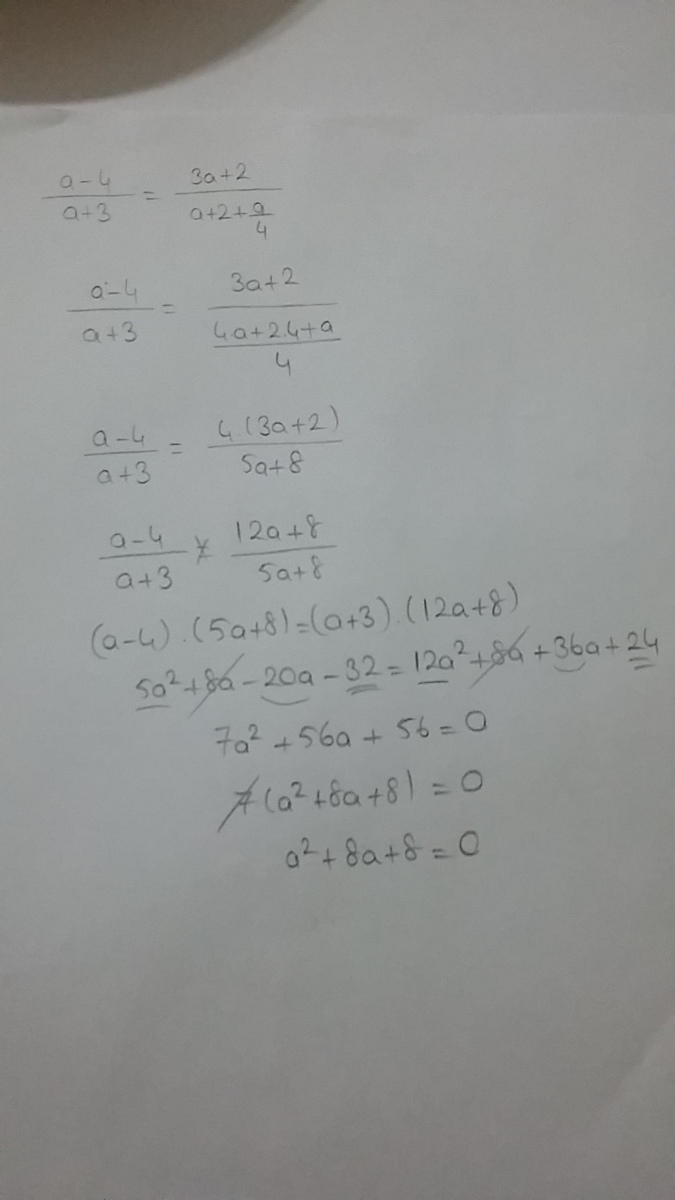 (a-4)/(a+3) = (3a+2)/(a+2+a/4)
(a-4)/(a+3) = (3a+2)/((4.a+2.4+a)/4)
(a-4)/(a+3) = (4.(3a+2))/(5a+8)
(a-4)/(a+3) = (12a+8)/(5a+8)
(a-4).(5a+8)=(a+3).(12a+8)
5a²+8a-20a-32=12a²+8a+36a+24
7a²+56a+56=0
7(a²+8a+8)=0
a²+8a+8=0